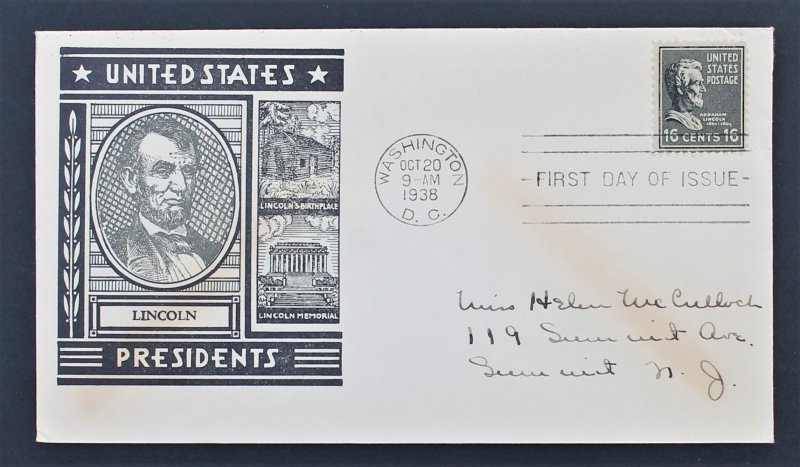 ★ UNITED STATES ★
LINCOLN'S BIRTHPLACE
LINCOLN MEMORIAL
LINCOLN
PRESIDENTS
WASHINGTON
OCT 20
9-AM
1938
D. C.
UNITED
STATES
POSTAGE
ABRAHAM
LINCOLN
1861-1865
16 CENTS 16
- FIRST DAY OF ISSUE -
Miss Helen McCulloch
119 Summit Ave.
Summit N. J.